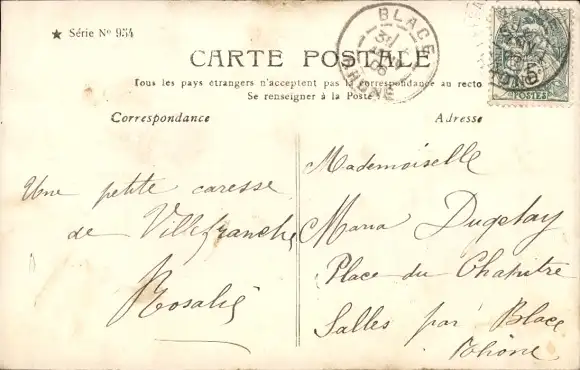 ★ Série Nº 954
CARTE POSTALE
Tous les pays étrangers n'acceptent pas la correspondance au recto
Se renseigner à la Poste
Correspondance
Adresse
BLACE
31
06
RHONE
POSTES
Une petite caresse
de Villefranche
Rosalie
Mademoiselle
Maria Dugelay
Place du Chapitre
Salles par Blace
Rhône